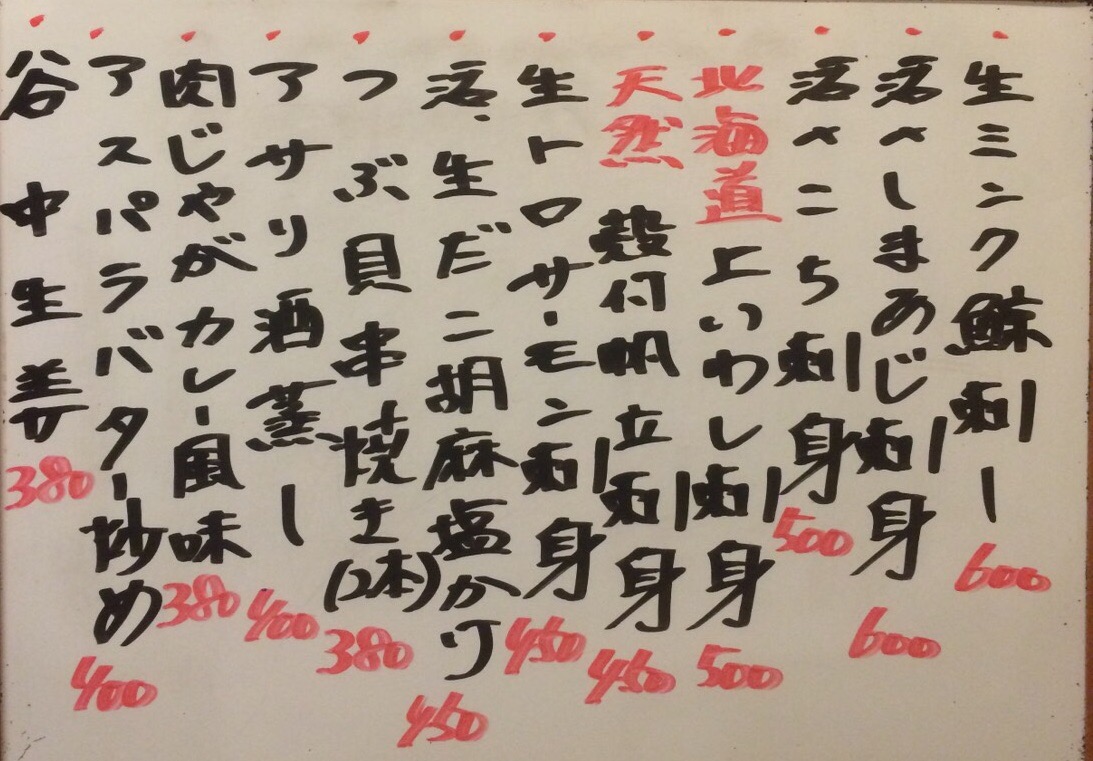 生ミンク鯨刺し 600
活〆しまあじ刺身 600
活〆こち刺身 500
北海道上いわし刺身 500
天然 殻付帆立刺身 450
生トロサーモン刺身 450
活、生だこ胡麻塩かけ 450
つぶ貝串焼き(2本) 380
アサリ酒蒸し 400
肉じゃがカレー風味 380
アスパラバター炒め 400
谷中生姜 380